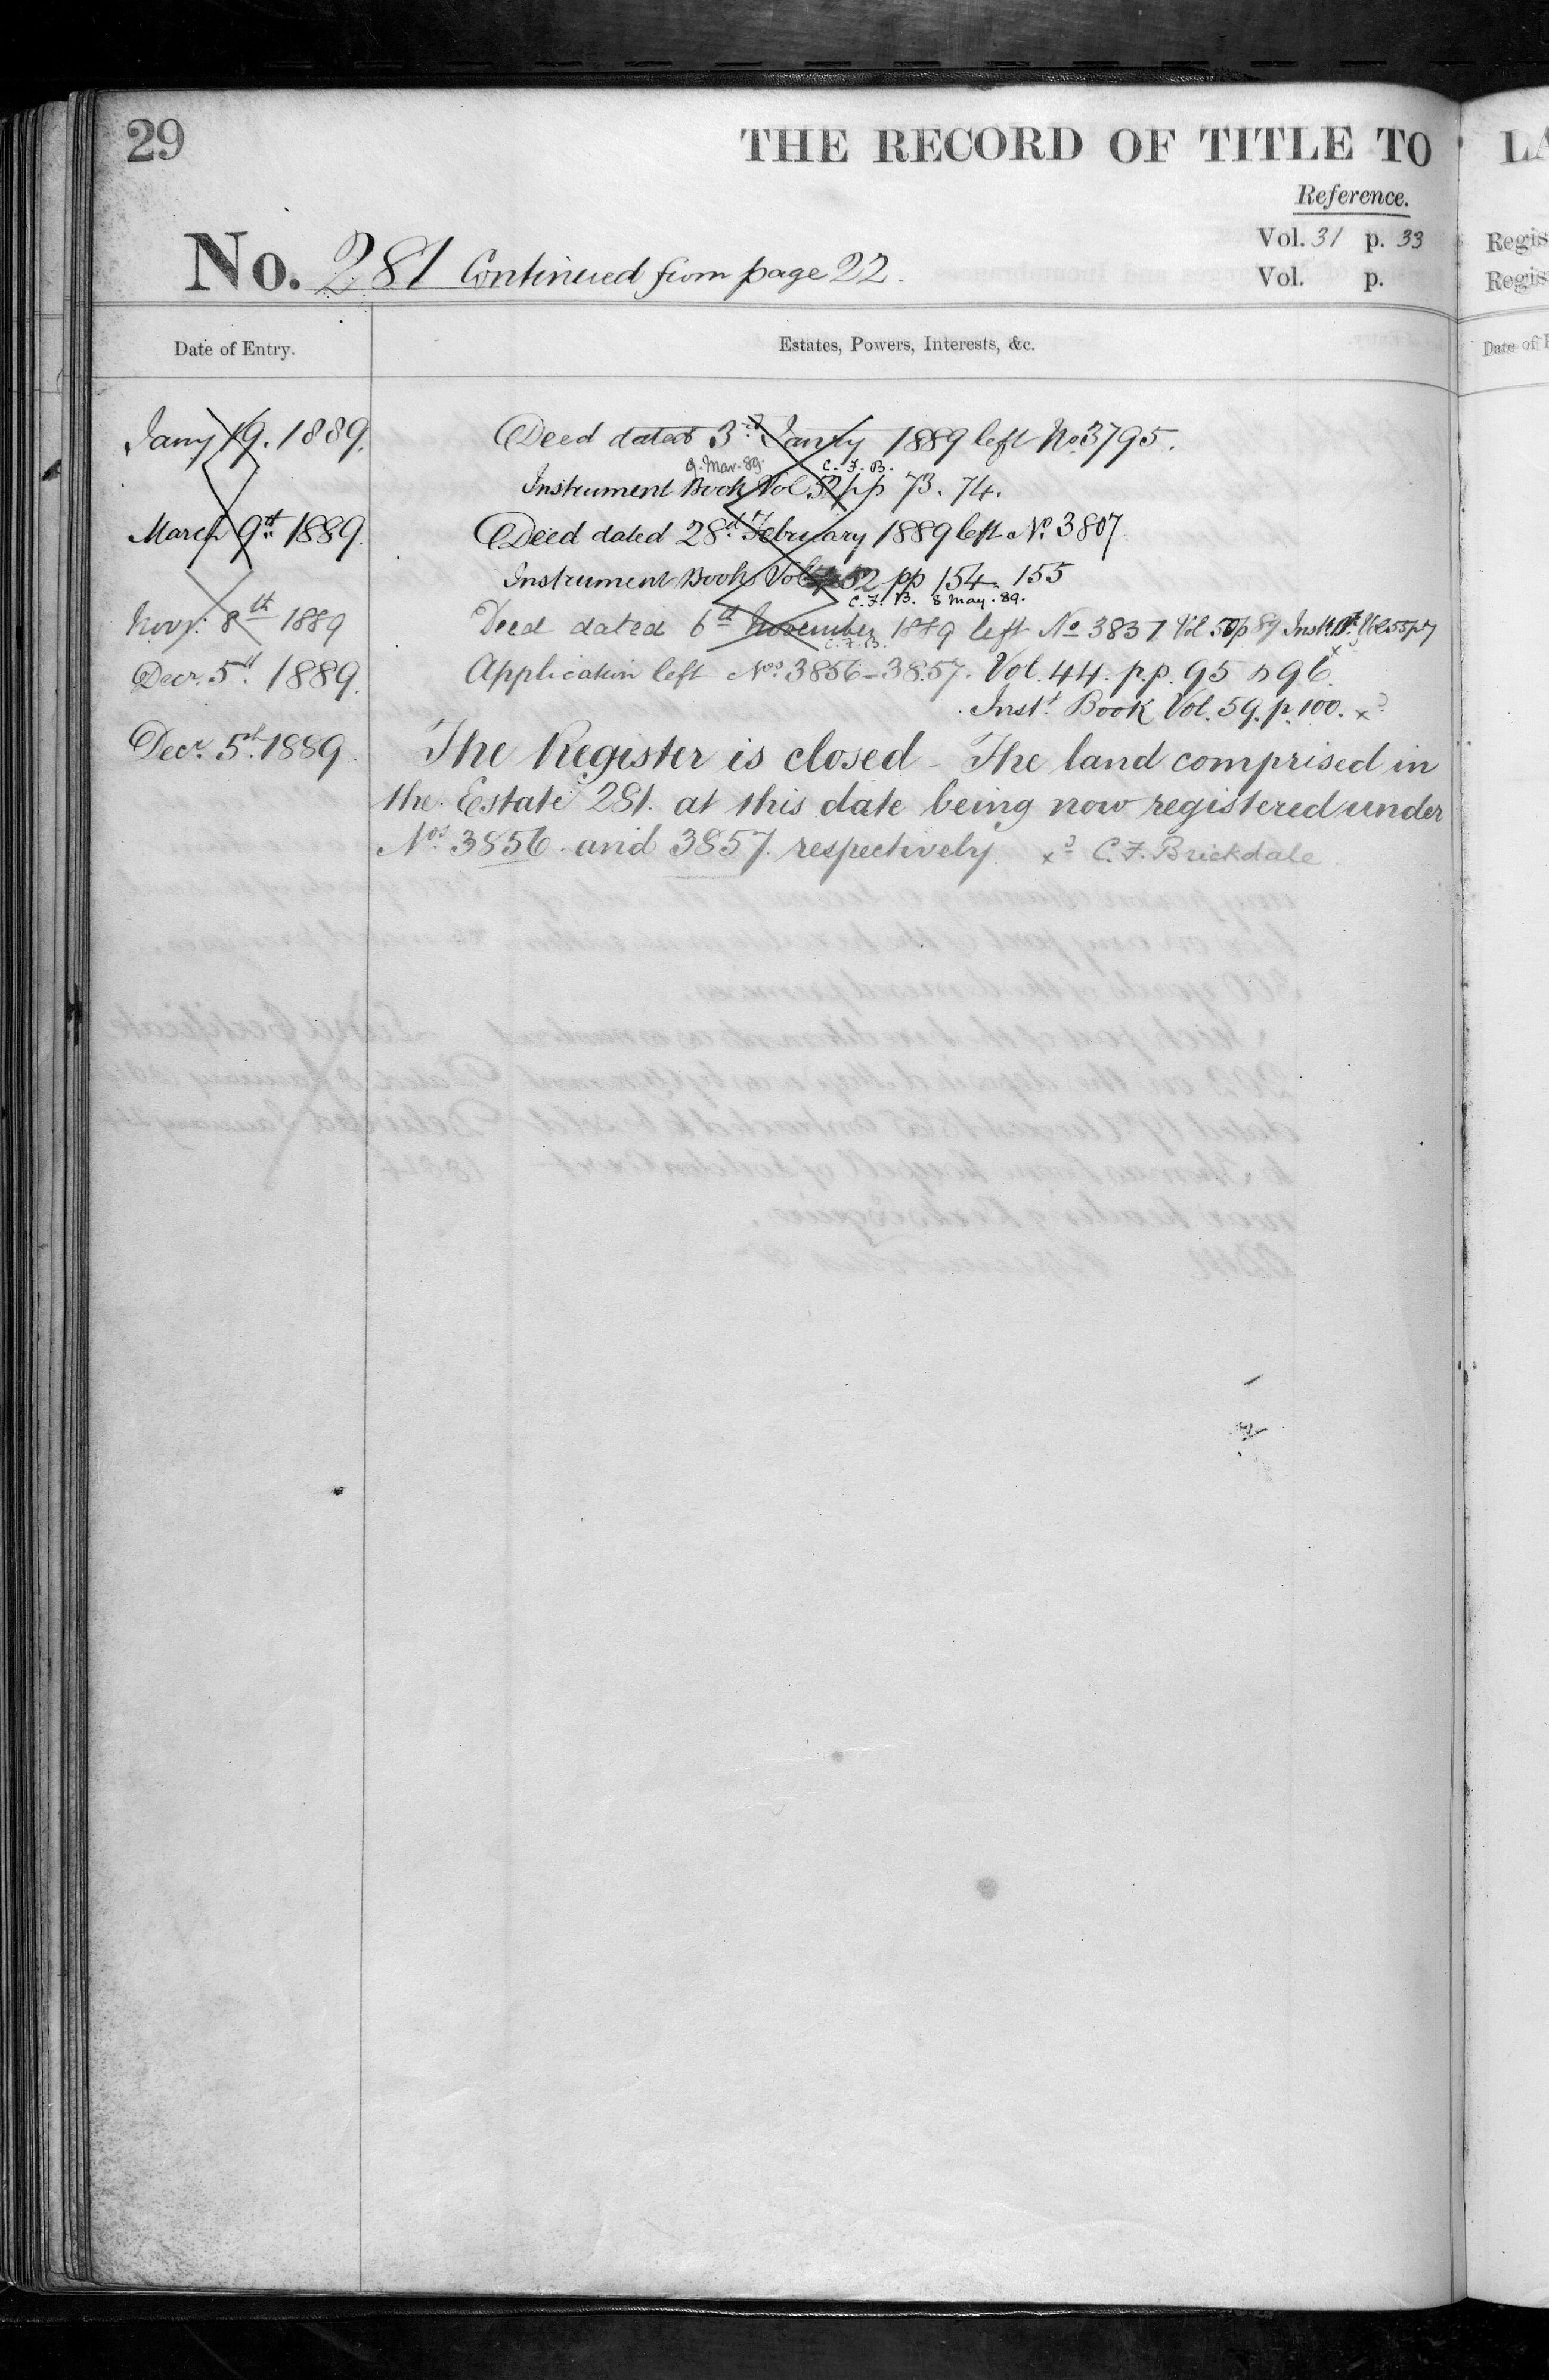 29
THE RECORD OF TITLE TO
LA
Reference.
Vol. 31 p. 33
Regis
No. 281 Continued from page 22.
Vol. p.
Regis
Date of Entry.
Estates, Powers, Interests, &c.
Date of E
Jany 19. 1889.
Deed dated 3rd Janry 1889 left No. 3795.
9. Mar. 89. C. F. B.
Instrument Book Vol 52 pp 73. 74.
March 9th 1889.
Deed dated 28th February 1889 left No. 3807
Instrument Book Vol 52 pp 154. 155
C. F. B. 8 May. 89.
Novr. 8th 1889
Deed dated 6th November 1889 left No 3837 Vol 50 p 89 Inst. Bk. Vol 55 p 7
C. F. B.
Decr. 5th 1889.
Application left Nos. 3856 – 3857. Vol. 44. p.p. 95 & 96. xd
Instt. Book Vol. 59. p. 100. xd
Decr. 5th 1889.
The Register is closed – The land comprised in
the Estate 281. at this date being now registered under
Nos. 3856. and 3857. respectively. xd C. F. Brickdale.